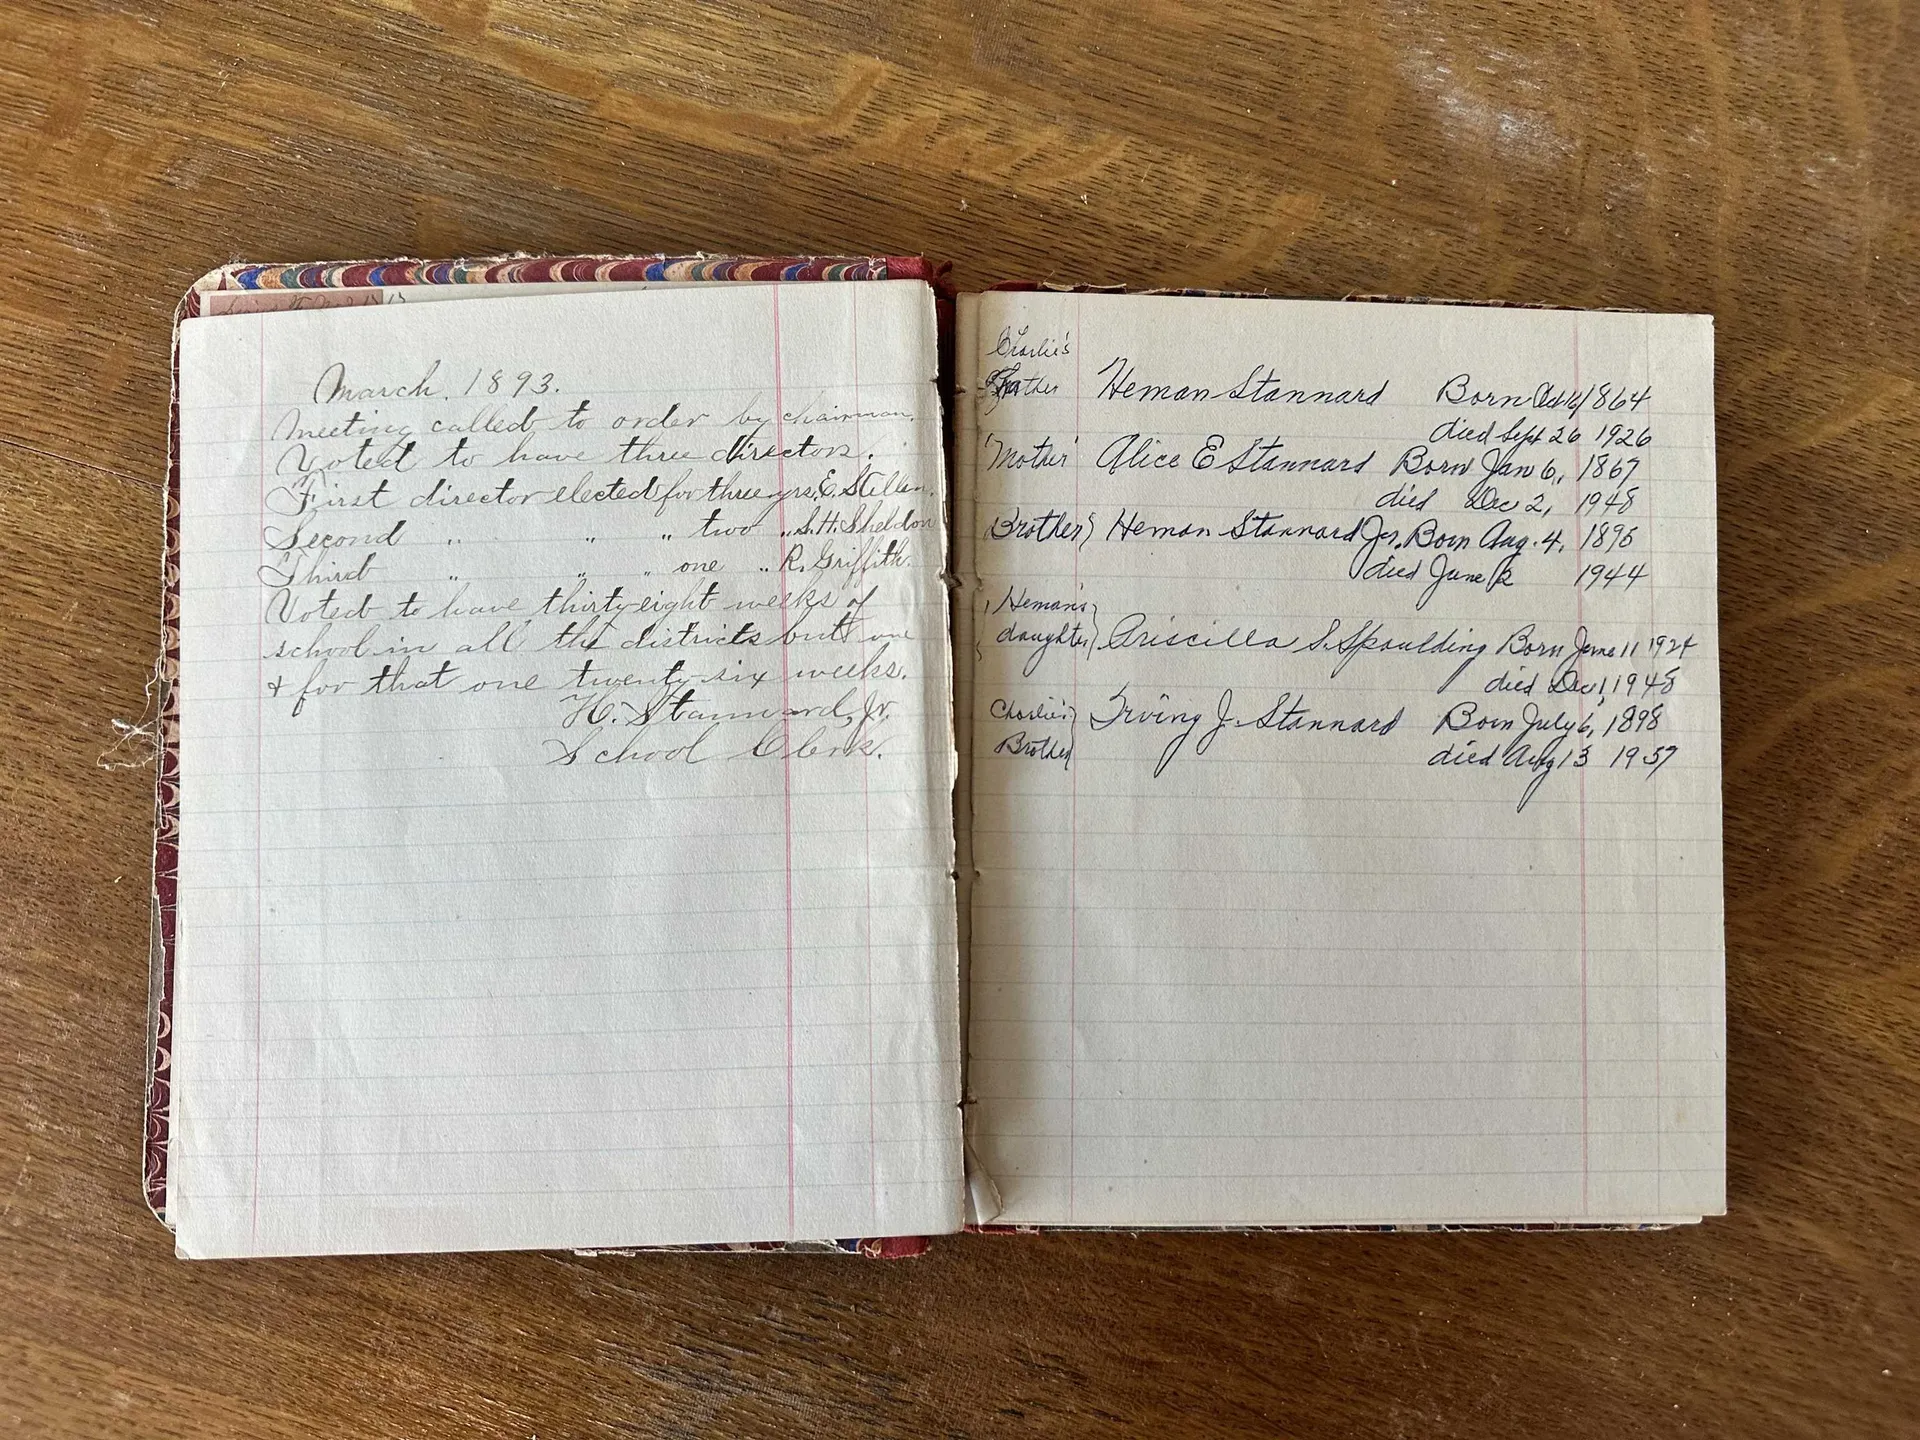 March. 1893.
Meeting called to order by chairman.
Voted to have three directors.
First director elected for three yrs. E. Stellen.
Second " " " two " S. H. Sheldon
Third " " " one " R. Griffith.
Voted to have thirty-eight weeks of
school in all the districts but one
& for that one twenty-six weeks.
H. Stannard, Jr.
School Clerk.
Charlie's
Father Heman Stannard Born 1864
died Sept 26 1926
Mother Alice E Stannard Born Jan 6, 1867
died Dec 2, 1948
Brother} Heman Stannard Jr. Born Aug. 4, 1896
died June 1944
Heman's
daughter} Priscilla S. Spaulding Born June 11 1924
died Dec 1, 1948
Charlie's Irving J. Stannard Born July 6, 1898
Brother died Aug 13 1957